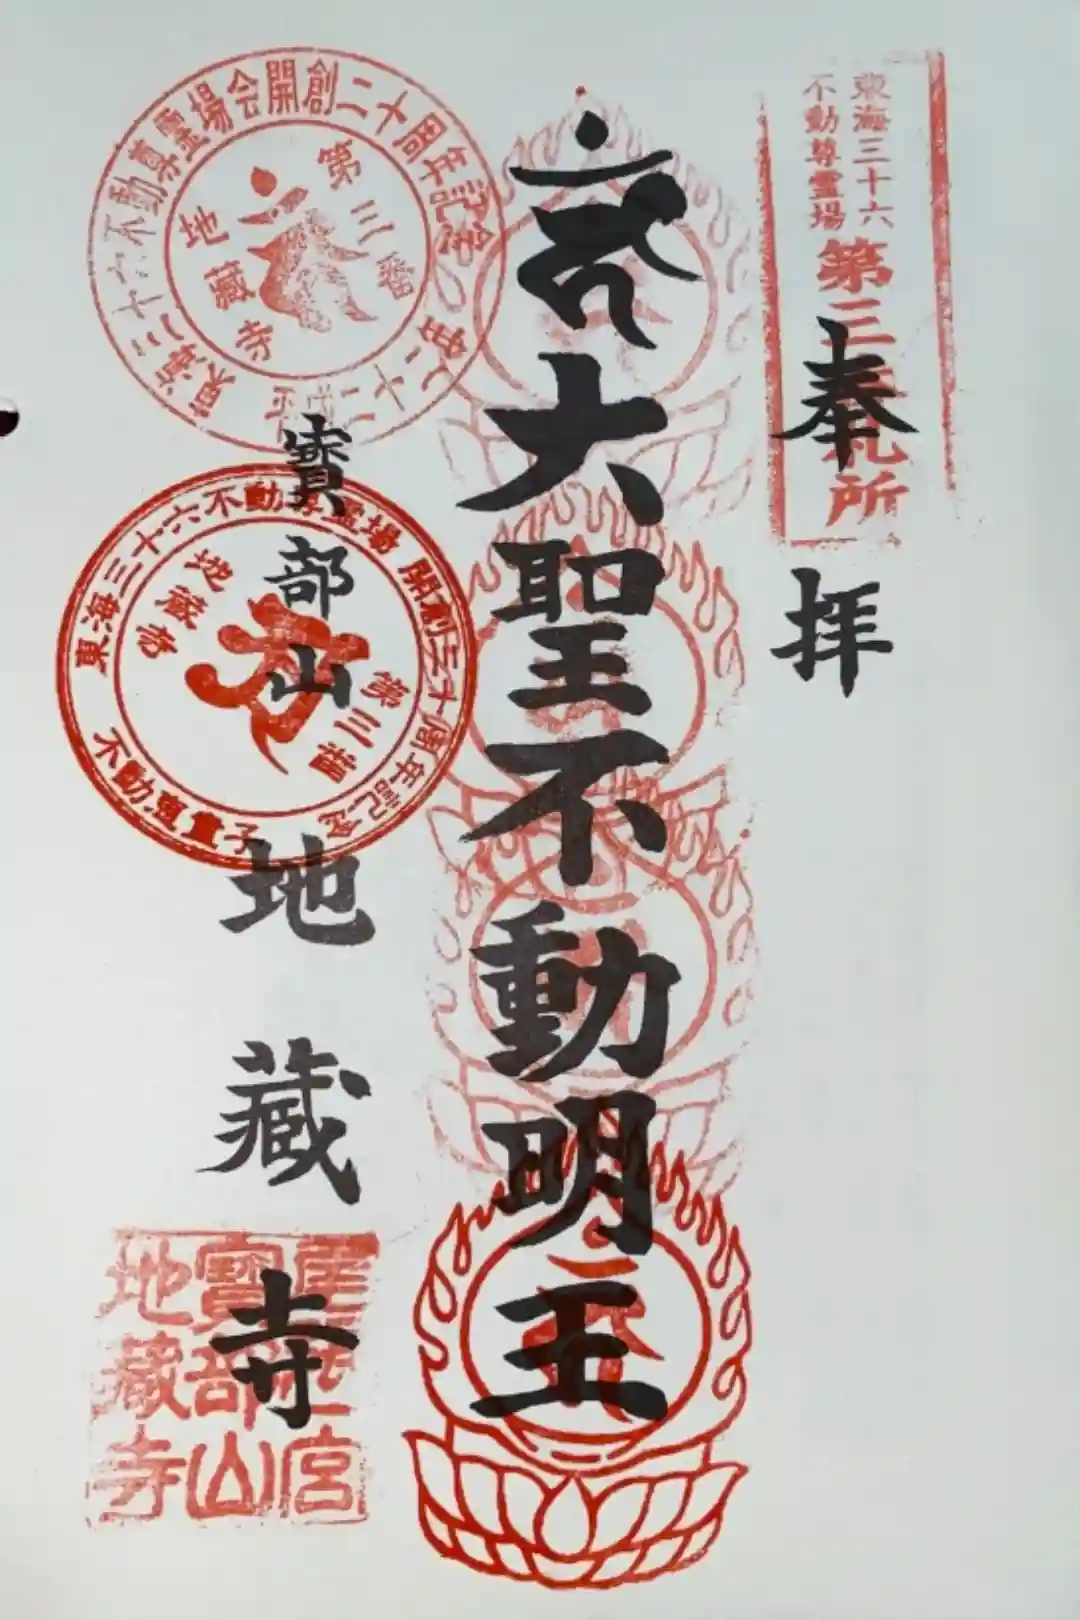 東海三十六
不動尊霊場
第三番札所
奉拝
大聖不動明王
寳部山
地藏寺
東海三十六不動尊霊場会開創二十周年記念
第三番
地藏寺
東海三十六不動尊霊場 開創三十周年記念
第三番
地藏寺
不動恵童子
寳部山
地藏寺